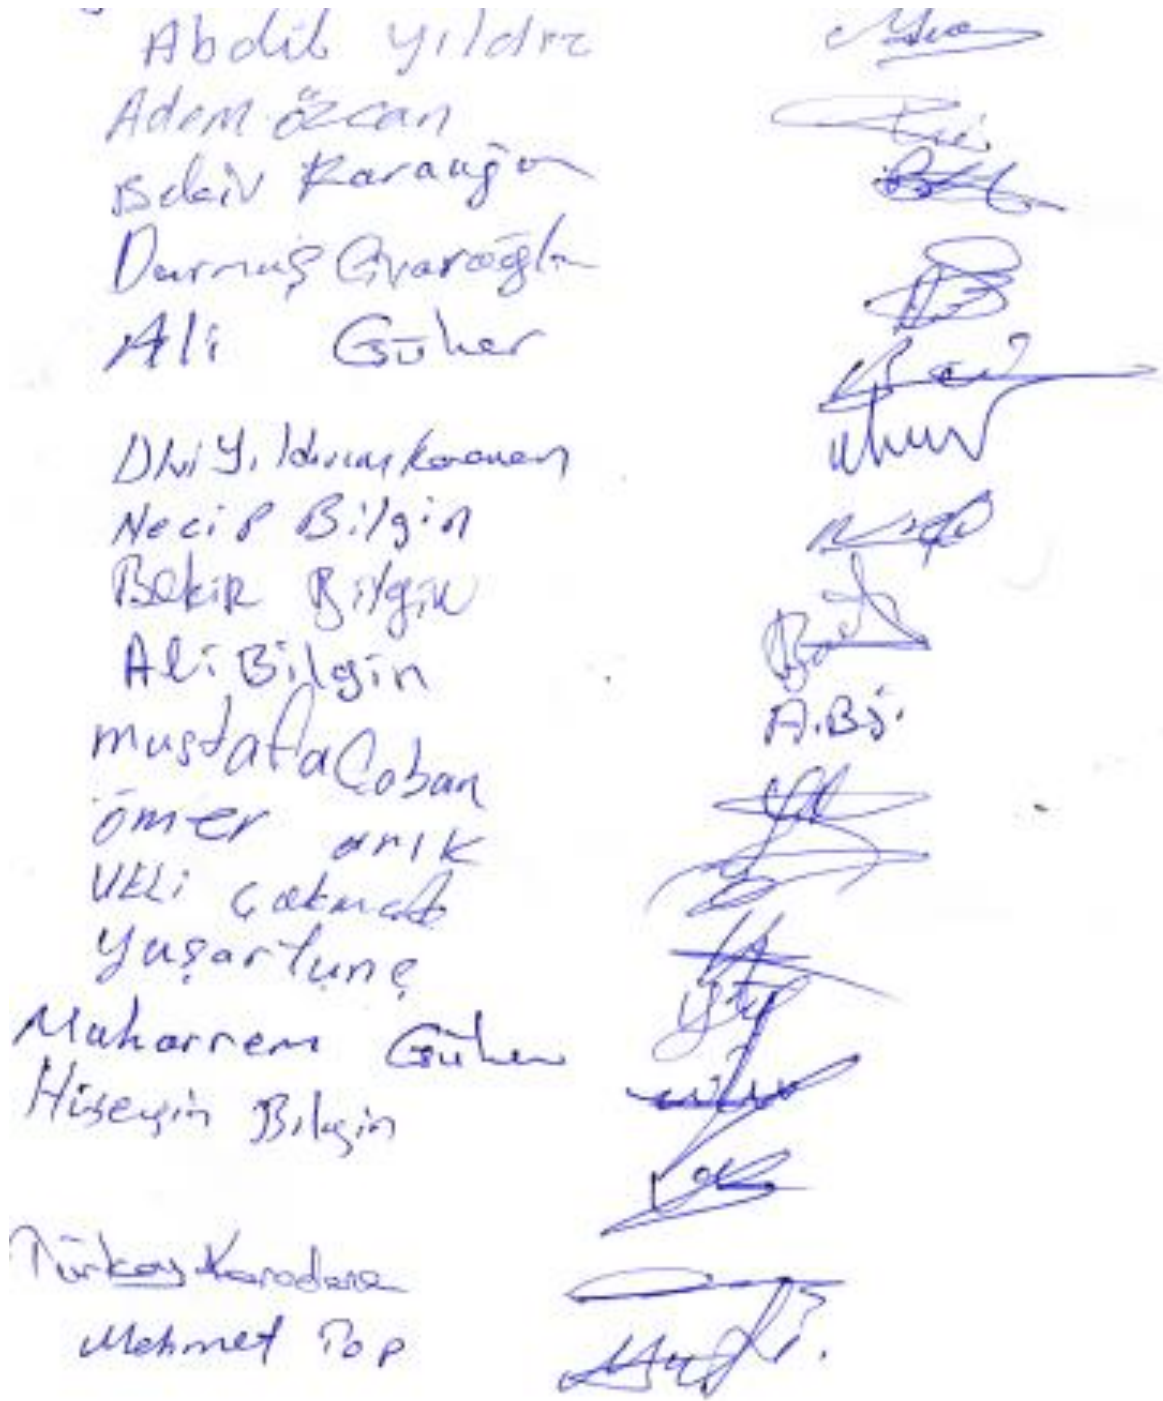 Abdil Yıldız
Adem özcan
Bekir Karaağın
Durmuş
Ali Güher
Necip Bilgin
Bekir Bilgin
Ali Bilgin
A.Bş.
mustafa Çoban
ömer arık
VELi Çakmak
Yaşar tunç
Muharrem Güher
Hüseyin Bilgin
Türkay Karadere
Mehmet Top